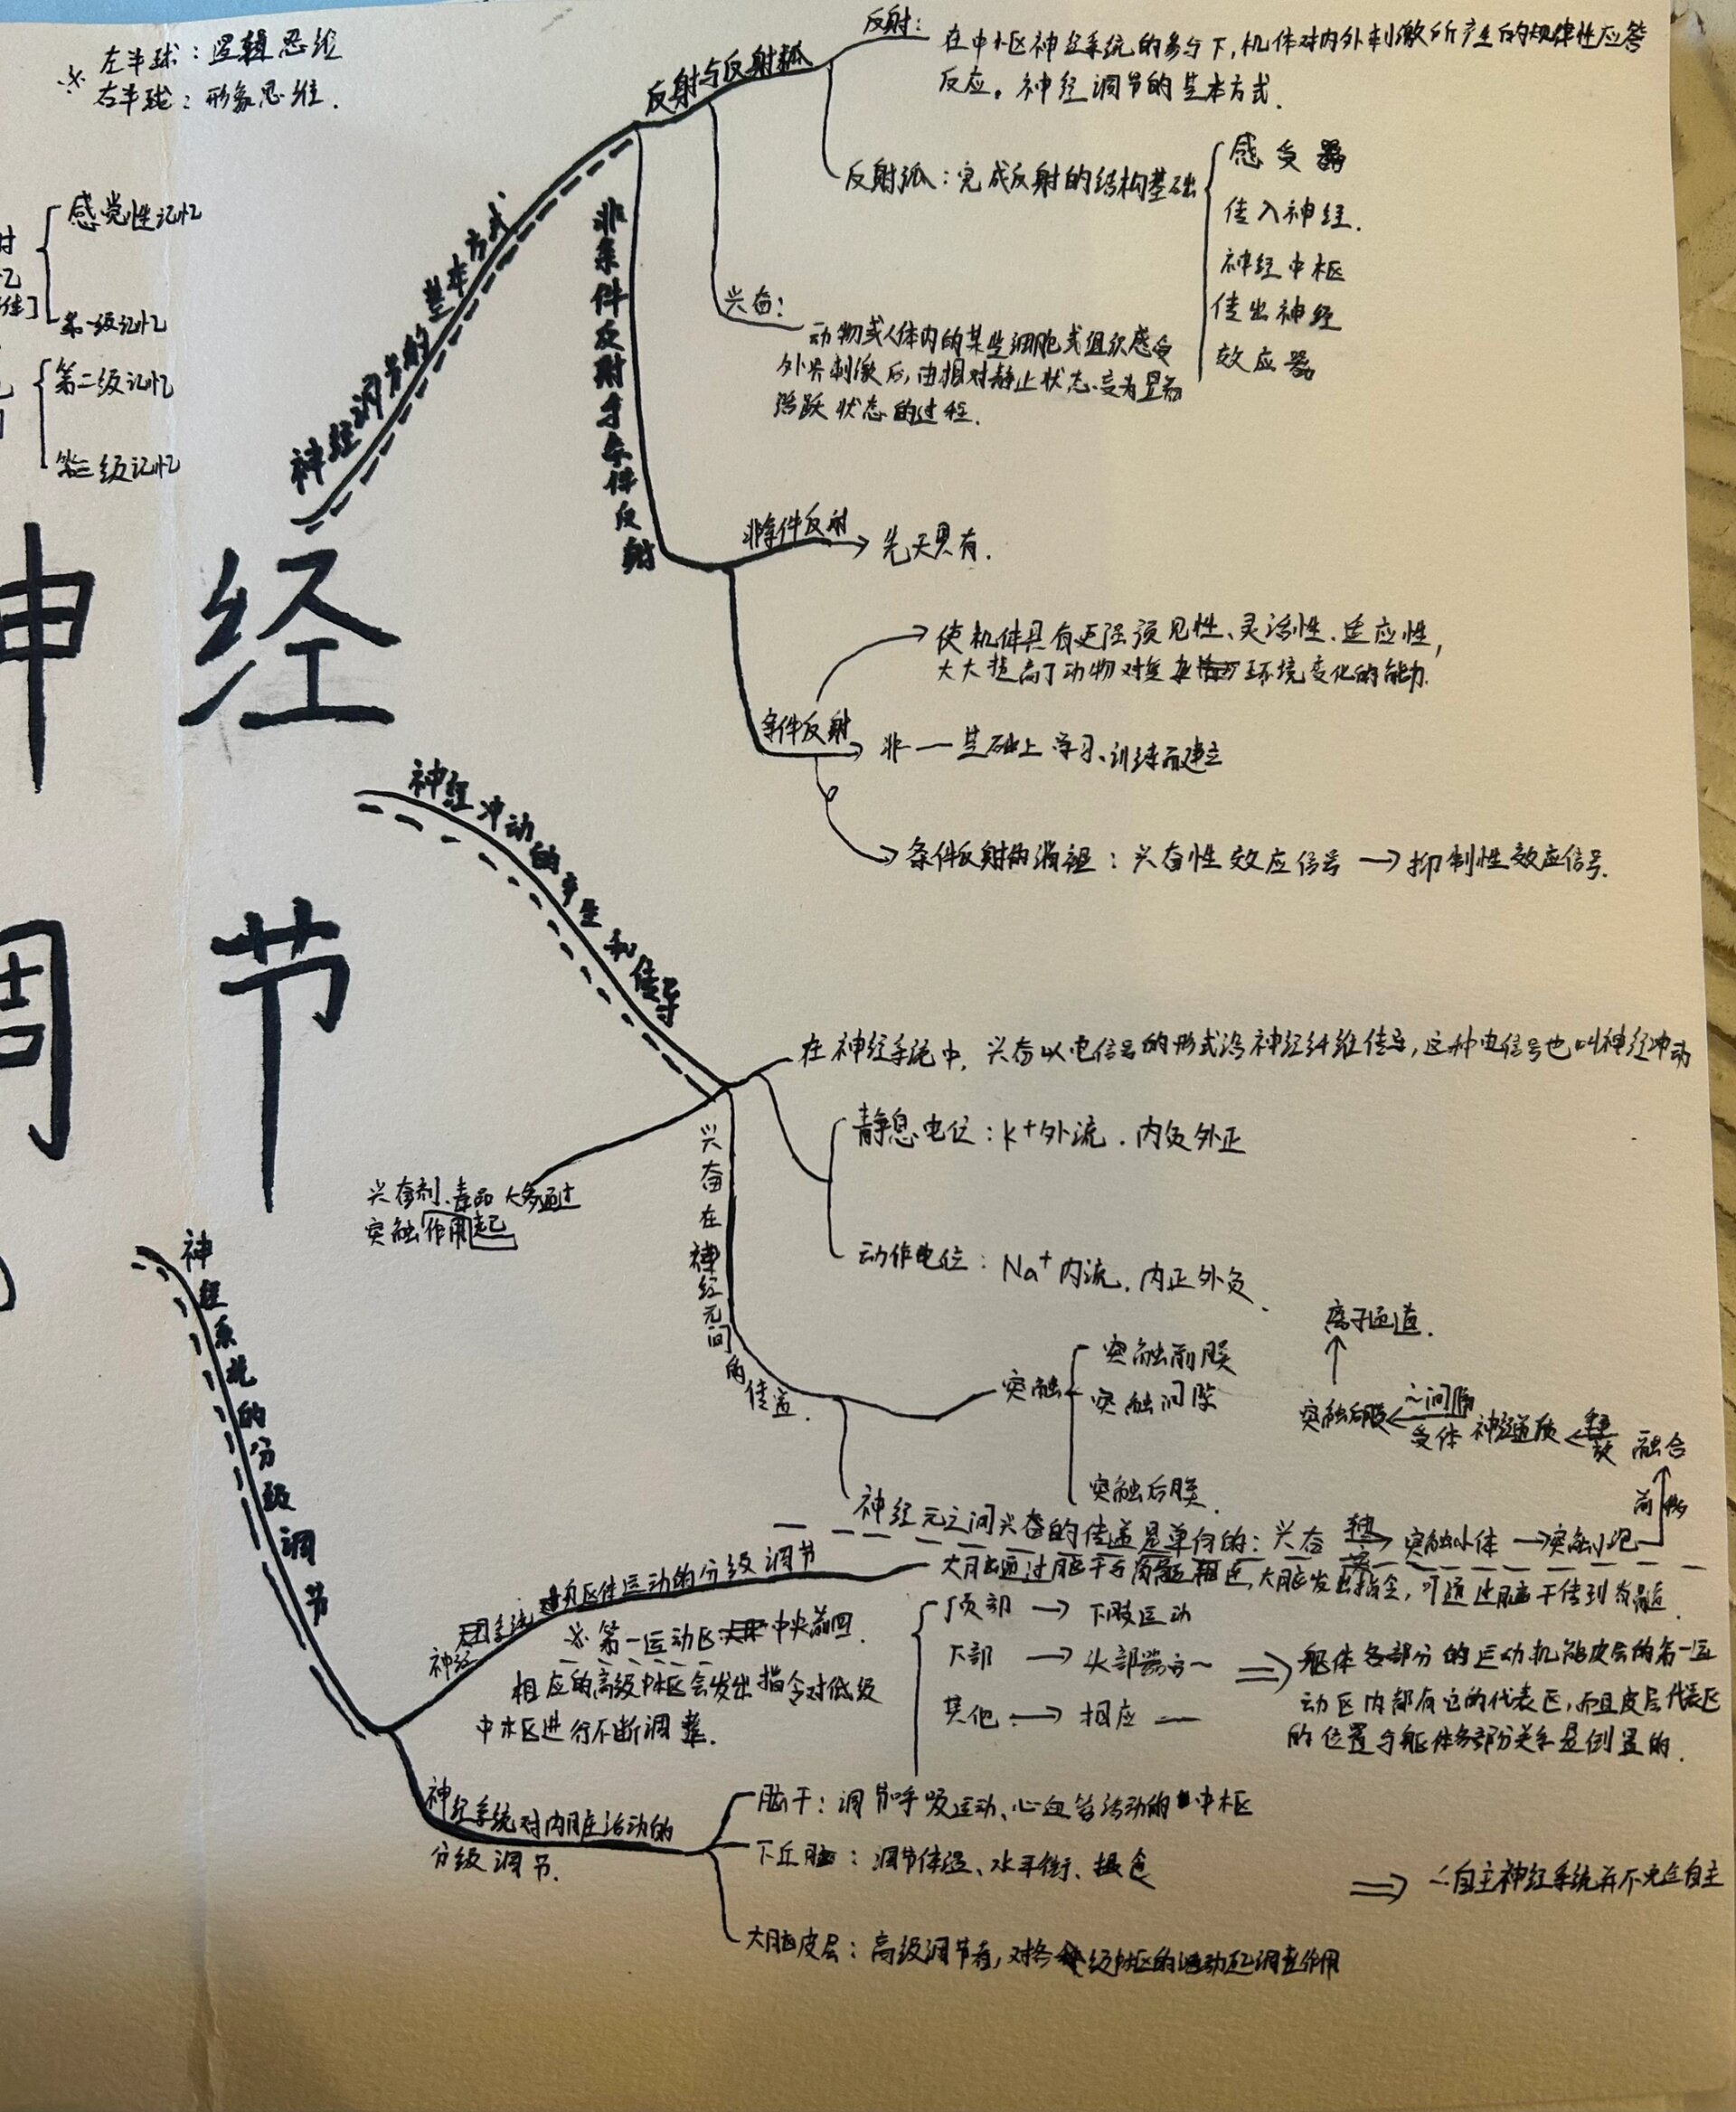 ※ 左半球：逻辑思维
右半球：形象思维．
感觉性记忆
第一级记忆
第二级记忆
第三级记忆
神经
调节
神经调节的基本方式
反射与反射弧
反射：
在中枢神经系统的参与下，机体对内外刺激所产生的规律性应答
反应。神经调节的基本方式．
反射弧：完成反射的结构基础
感受器
传入神经．
神经中枢
传出神经
效应器
兴奋：
动物或人体内的某些细胞或组织感受
外界刺激后，由相对静止状态变为显著
活跃状态的过程．
非条件反射与条件反射
非条件反射 → 先天具有．
条件反射
→ 使机体具有更强预见性、灵活性、适应性，
大大提高了动物对复杂环境变化的能力．
→ 非一基础上 学习、训练而建立
→ 条件反射的消退：兴奋性效应信号 → 抑制性效应信号．
神经冲动的产生和传导
在神经系统中，兴奋以电信号的形式沿神经纤维传导，这种电信号也叫神经冲动
静息电位：K+外流．内负外正
动作电位：Na+内流．内正外负．
兴奋剂、毒品大多通过
突触作用起
兴奋在神经元间的传递．
突触
突触前膜
突触间隙
突触后膜
离子通道．
突触后膜 ← ～间隙 受体 神经递质 ← 融合
神经元之间兴奋的传递是单向的：兴奋 → 突触小体 → 突触小泡
神经系统的分级调节
神经系统对躯体运动的分级调节
大脑通过脑干与脊髓相连，大脑发出指令，可通过脑干传到脊髓．
※ 第一运动区 中央前回．
相应的高级中枢会发出指令对低级
中枢进行不断调整．
顶部 → 下肢运动
下部 → 头部器官～
其他 → 相应 —
⇒ 躯体各部分的运动机能皮层的第一运
动区内都有它的代表区，而且皮层代表区
的位置与躯体各部分关系是倒置的．
神经系统对内脏活动的
分级调节．
脑干：调节呼吸运动、心血管活动的中枢
下丘脑：调节体温、水平衡、摄食
大脑皮层：高级调节者，对各级中枢的活动起调整作用
⇒ ∴自主神经系统并不完全自主